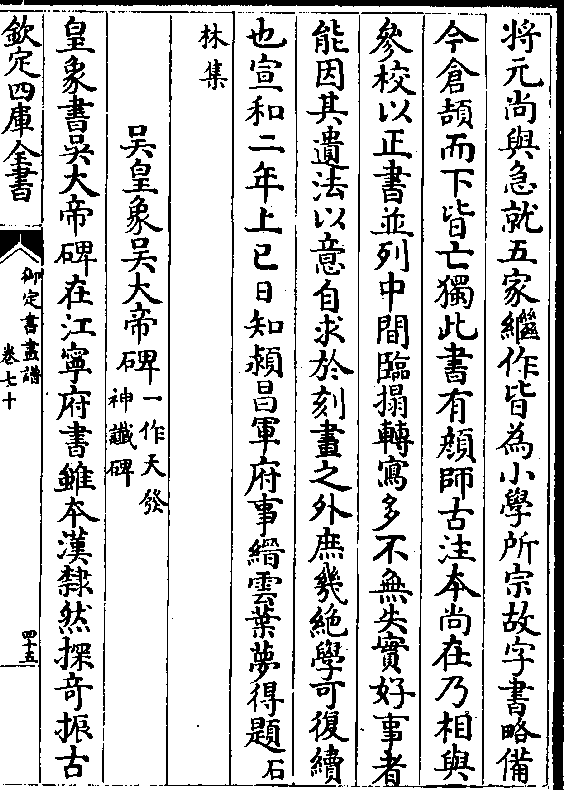 將元尚與急就五家繼作皆為小學所宗故字書略備
今倉頡而下皆亡獨此書有顔師古注本尚在乃相與
參校以正書並列中間臨搨轉寫多不無失實好事者
能因其遺法以意自求於刻畫之外庶幾絶學可復續
也宣和二年上巳日知潁昌軍府事縉雲葉夢得題石
林集
吳皇象吳大帝碑一作天發神讖碑
皇象書吳大帝碑在江寧府書雖本漢隸然探奇振古
欽定四庫全書
御定書畫譜
卷七十
四十五